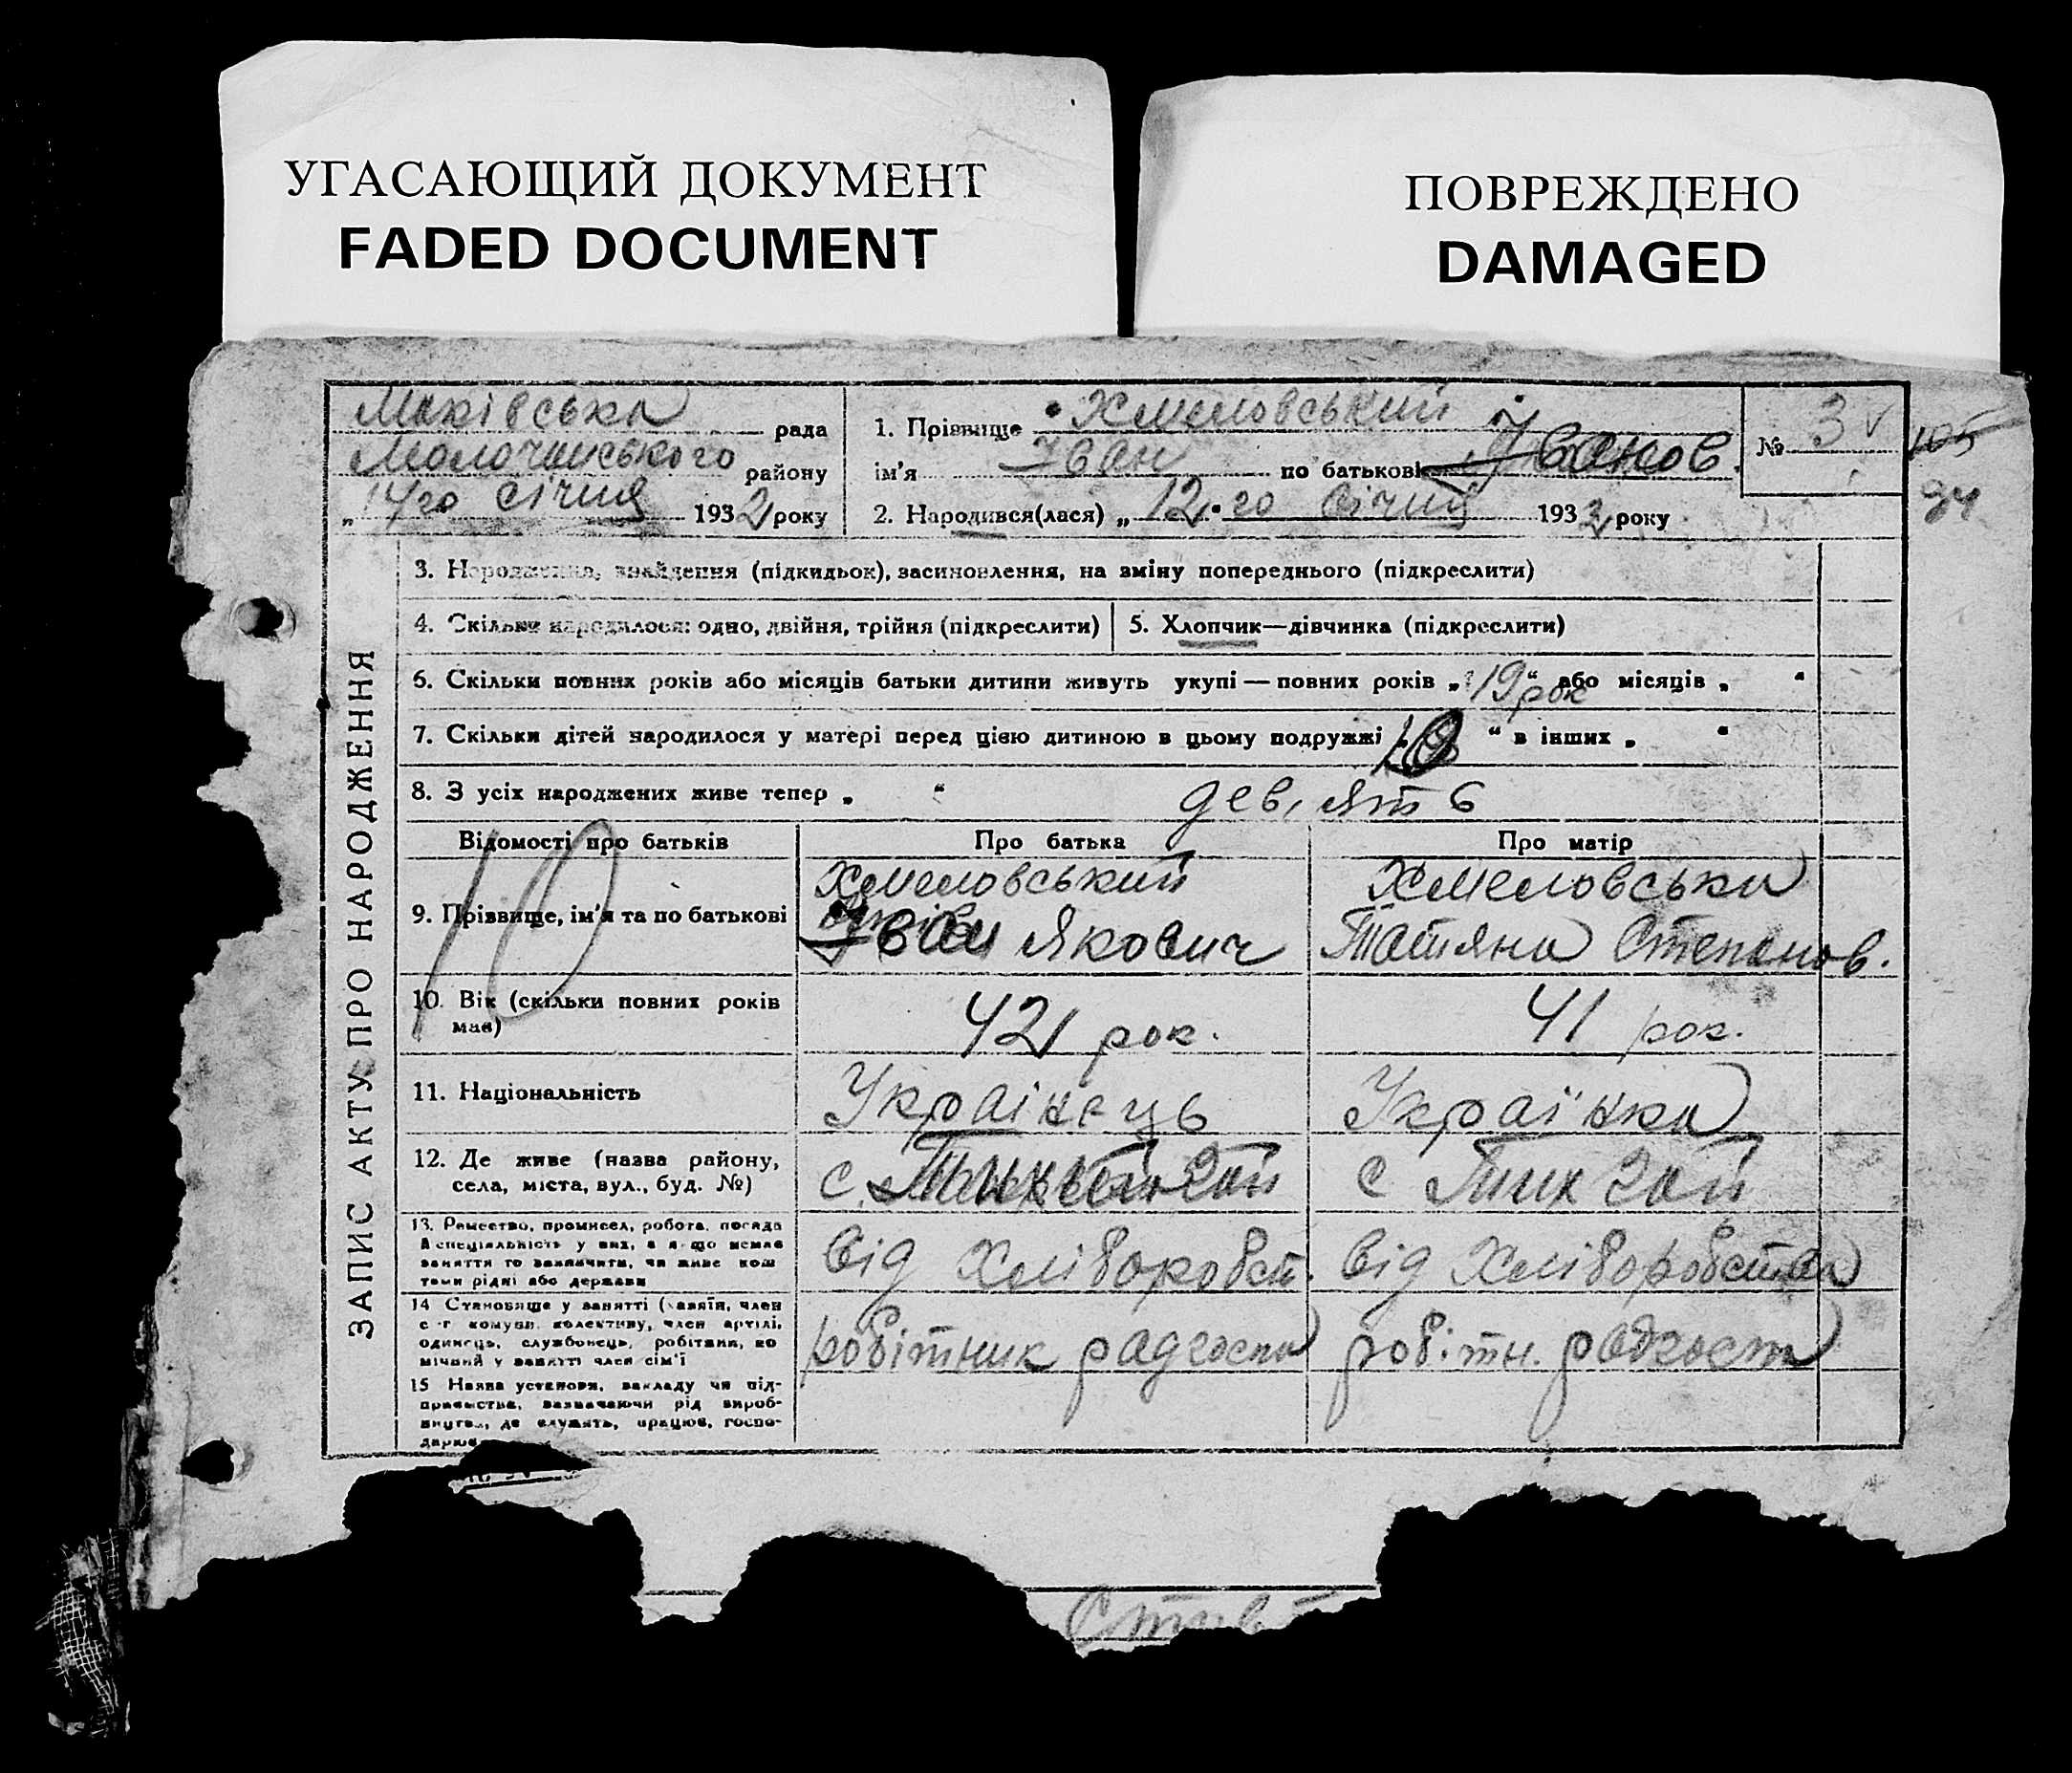 УГАСАЮЩИЙ ДОКУМЕНТ
FADED DOCUMENT
ПОВРЕЖДЕНО
DAMAGED
Маківська рада
Молочанського району
„14го січня 1932 року
1. Прізвище Хмеловський
ім'я Іван по батькові Іванов.
2. Народився(лася) „12.го січня 1932 року
№ 3
105
94
ЗАПИС АКТУ ПРО НАРОДЖЕННЯ
3. Народження, знайдення (підкидьок), засиновлення, на зміну попереднього (підкреслити)
4. Скільки народилося: одно, двійня, трійня (підкреслити)
5. Хлопчик—дівчинка (підкреслити)
6. Скільки повних років або місяців батьки дитини живуть укупі — повних років „19 рок“ або місяців „ “
7. Скільки дітей народилося у матері перед цією дитиною в цьому подружжі „10“ в інших „ “
8. З усіх народжених живе тепер „ “ дев,ять
10
Відомості про батьків
Про батька
Про матір
9. Прізвище, ім'я та по батькові
Хмеловський
Іван Якович
Хмеловська
Татяна Степанов.
10. Вік (скільки повних років має)
42 рок.
41 рок.
11. Національність
Українець
Українка
12. Де живе (назва району, села, міста, вул., буд. №)
с.
с
13. Ремество, промисел, робота, посада й спеціяльність у них, а якщо немає заняття то зазначити, чи живе коштами рідні або держави
від Хліборобст.
від Хліборобства
14 Становище у занятті (хазяїн, член с-г комуни, колективу, член артілі, одинець, службовець, робітник, помічний у занятті член сім'ї
робітник радгоспа
робітн. радгоспа
15 Назва установи, закладу чи підприємства, зазначаючи рід виробництва, де служить, працює, господарює